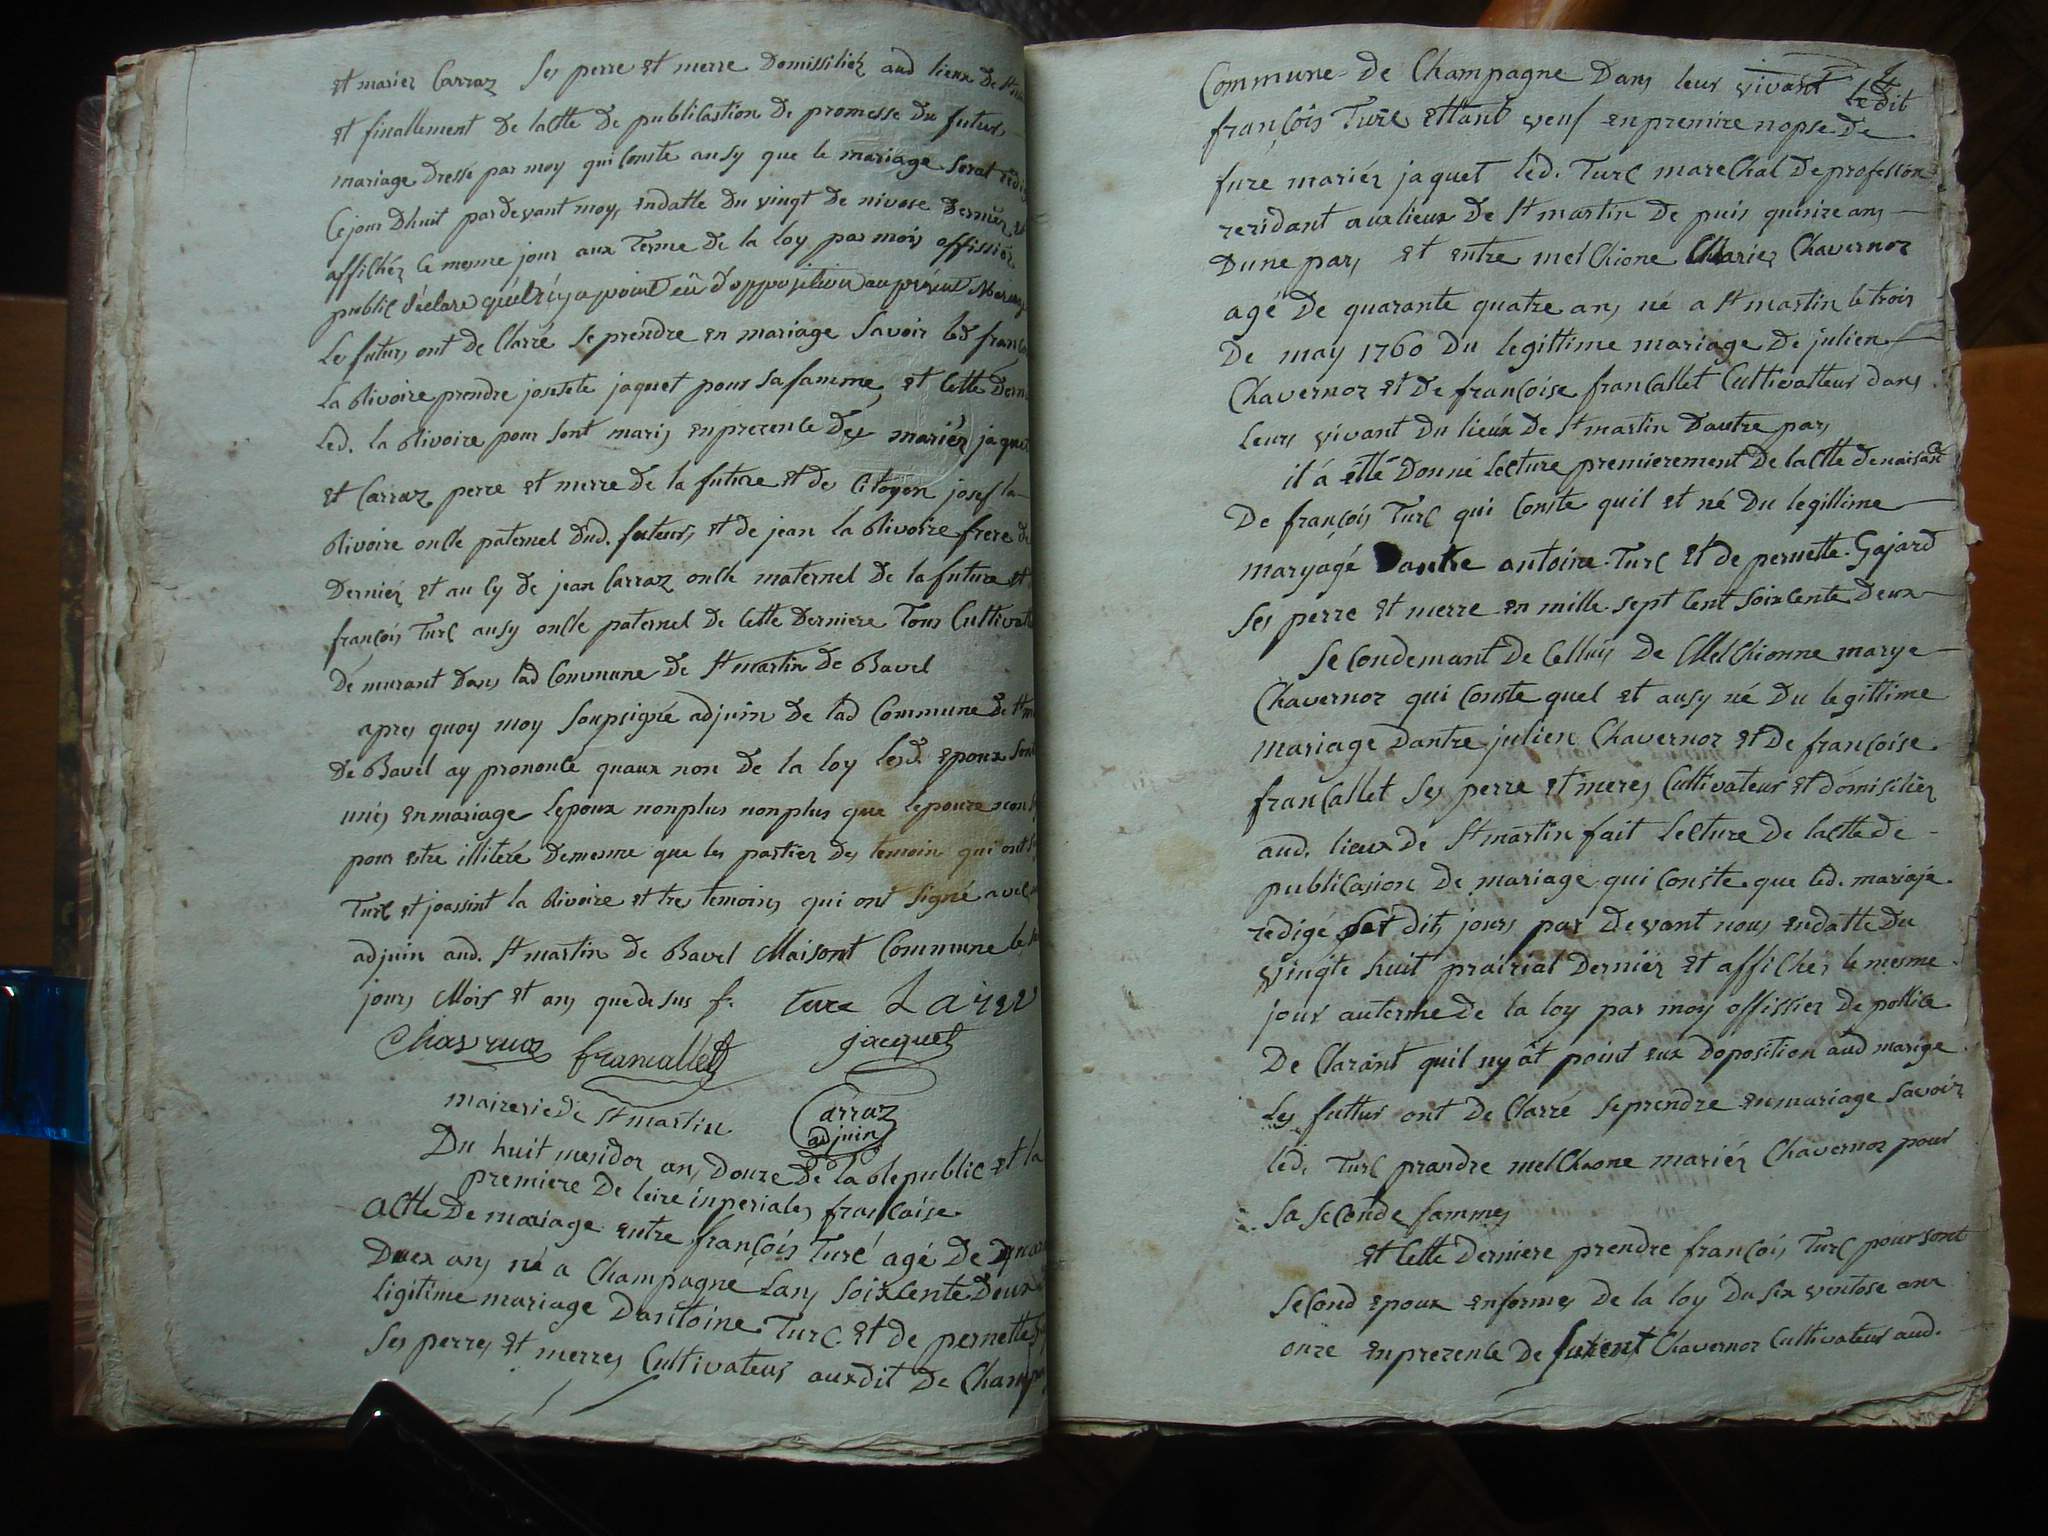 et mariez Carraz ses perre et merre domissiliéz aud lieux de St
et finallement de lactte de publicastion de promesse du futur
mariage dressé par moy qui conste ausy que le mariage serat
Cejour dhuit pardevant moy, endatte du vingt de nivose dernier
affichéz le mesme jour aux terme de la loy par moy offissiér
public déclare quil ny a point eû d'opposition au présent
Les futurs ont de Clarré se prendre en mariage savoir led
La Rivoire prendre josette jaquet pour sa famme, et cette
Led. la Rivoire pour sont maris en prezence des mariér
et Carraz perre et merre de la future et de citoyen josef la
Rivoire oncle paternel dud. futeur, et de jean la Rivoire frere
dernier et au cy de jean Carraz oncle maternel de la future et
françois Turc ausy oncle paternel de cette derniere Tous
demurant dans lad Commune de St martin de Bavel
apres quoy moy soupsigné adjuin de lad Commune de St
de Bavel ay prononcé quaux non de la loy lesd. epoux sont
unis en mariage lepoux nonplus nonplus que lepouze non
pour estre illiteré demesme que les partiez des temoin qui ont
Turc et joassint la Rivoire et tres temoins qui ont signé avec
adjuin aud. St martin de Bavel Maisont Commune le
jours Mois et ans quedesus f.
turc
jacquet
francallet
Carraz
adjuin
maireriede St martin
Du huit mesidor ans douze de la Republic et la
premiere de leire inperiales francaise
Actte de mariage entre françois Turc agé de
Deux ans né a Champagne Lans soixcente deux
ligitime mariage Dantoine Turc et de pernette
ses perres et merres Cultivateurs auxdit de
Commune de Champagne Dans leur vivant ledit
françois Turc ettant veuf enpremire nopse de
fure mariéz jaquet led. Turc marechal de profession
rezidant aux lieux de St martin de puis quinze ans
Dune pars et entre melchione Mariez Chavernoz
agé de quarante quatre ans né a St martin le trois
De may 1760 Du legittime mariage de julien
Chavernoz et de françoise francallet Cultivatteur dans
leurs vivant du lieux de St martin dautre pars
il á étté donné Lecture premierement de lactte denaisant
De françois Turc qui conste quil et né du legittime
maryagé Dantre antoine Turc et de pernette Gajard
ses perre et merre en mille sept cent soixcente deux
Secondemant de celluy de Melchionne marye
Chavernoz qui conste quel et ausy né du legittime
mariage dantre julien Chavernoz et de françoise
francallet ses perre et meres Cultivateur et domisiliéz
aud. lieux de St martin fait Lecture de lactte de
publicasion de mariage qui conste que led. mariaje
redigé dit jours par devant nous endatte du
vingte huit prairial dernier et affichez le mesme
jour auterme de la loy par moy offissier de pollice
De Clarant quil ny ât point eux doposition aud marige
Les futtur ont de Clarré seprendre en mariage savoir
led. Turc prandre melchione mariéz Chavernoz pour
sa seconde fammes
et cette derniere prendre françois Turc pour sont
second epoux enformes de la loy du six ventose ans
onze en prezence de Chavernoz Cultivateur aud.